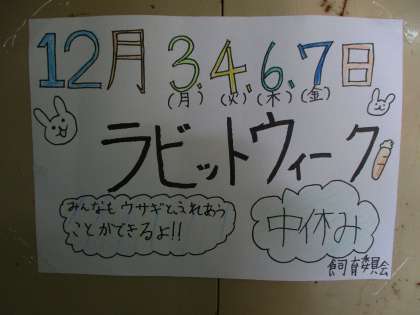 12月 3,4,6,7日
(月)(火)(木)(金)
ラビットウィーク
みんなもウサギとふれあう
ことができるよ!!
中休み
飼育委員会